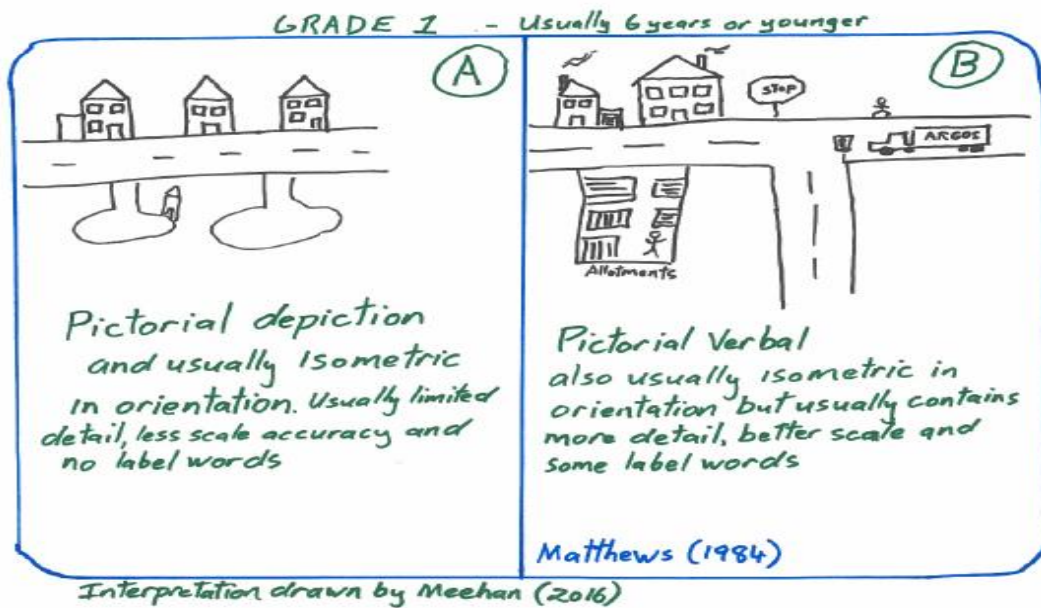 GRADE 1 - Usually 6 years or younger
A
Pictorial depiction
and usually Isometric
in orientation. Usually limited
detail, less scale accuracy and
no label words
B
STOP
ARGOS
Allotments
Pictorial Verbal
also usually isometric in
orientation but usually contains
more detail, better scale and
some label words
Matthews (1984)
Interpretation drawn by Meehan (2016)